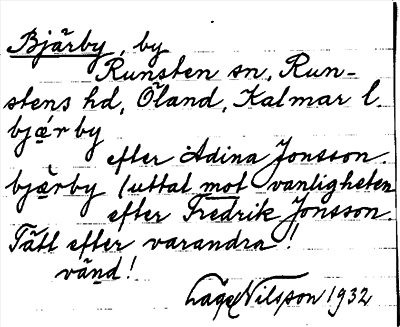 Bjärby, by
Runsten sn, Run-
stens hd, Öland, Kalmar l.
bjæ̀r by
efter Adina Jonsson.
bjæ̀rby (uttal mot vanligheten
efter Fredrik Jonsson.
Tätt efter varandra!
vänd!
Lage Nilsson 1932